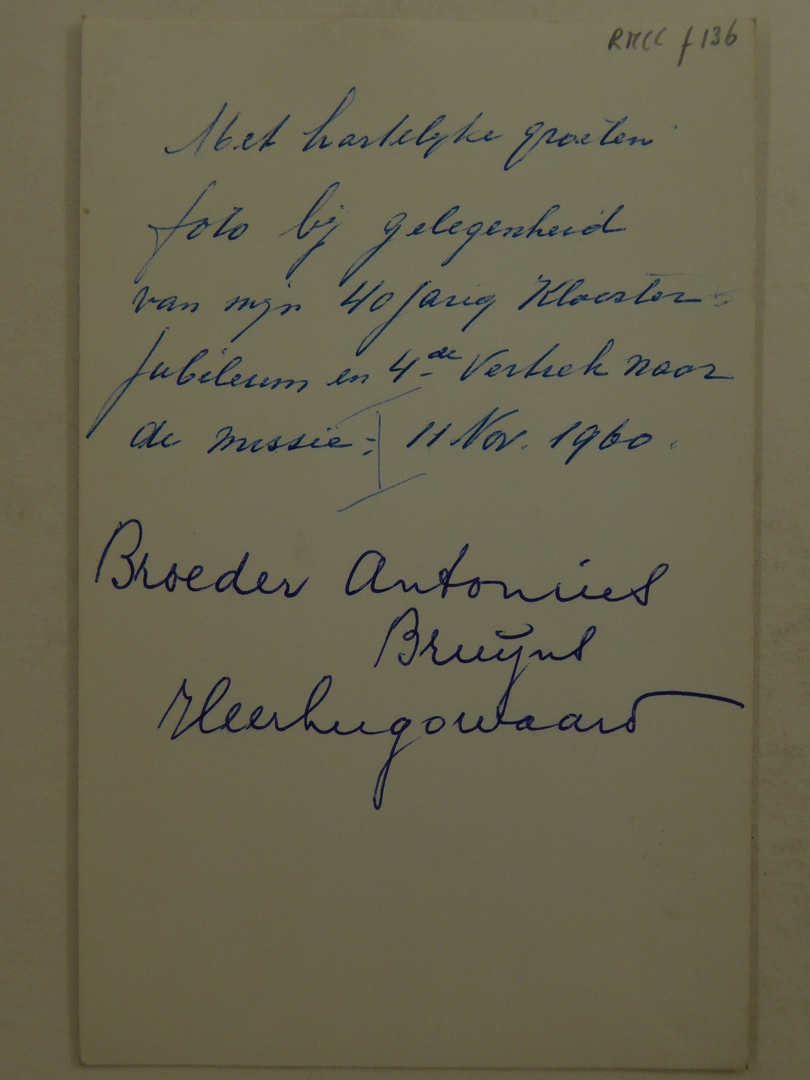 RMCC f 136
Met hartelyke groeten
foto bij gelegenheid
van mijn 40 Jarig Klooster
Jubileum en 4de Vertrek naar
de missie: 11 Nov. 1960.
Broeder Antonius
Bruÿns
Heerhugowaard